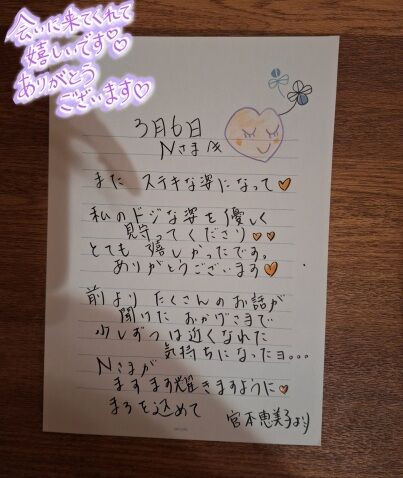 会いに来てくれて
嬉しいです♡
ありがとう
ございます♡
3月6日
Nさま
また ステキな姿になって🧡
私のドジな姿を優しく
見守ってくださり🧡🧡
とても嬉しかったです。
ありがとうございます🧡
前より たくさんのお話が
聞けた おかげさまで
少しずつは近くなれた
気持ちになったョ...
Nさまが
ますます輝きますように🧡
まろを込めて
宮本恵美子より